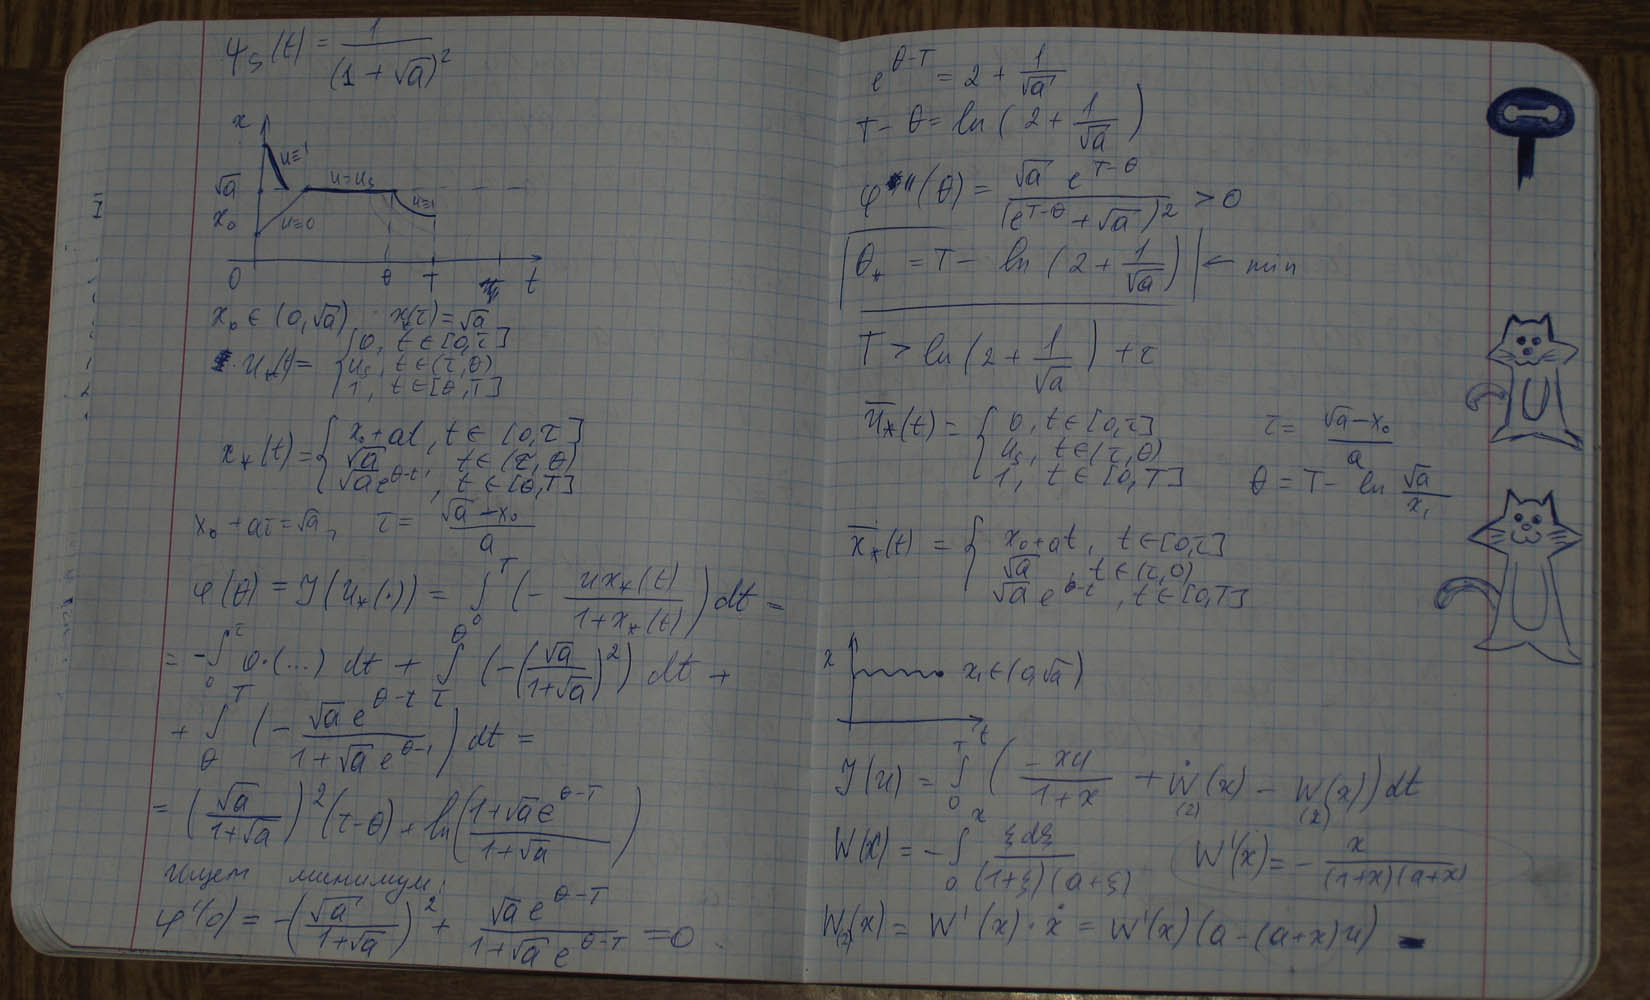 ψ_s(t) = 1/(1 + √a)²
x
u=1
√a
u=u_s
u=1
x₀
u=0
0 θ T t
x₀ ∈ (0, √a) x(τ) = √a
u_*(t) = { 0, t ∈ [0, τ]
u_s, t ∈ (τ, θ)
1, t ∈ [θ, T]
x_*(t) = { x₀ + at, t ∈ [0, τ]
√a, t ∈ (τ, θ)
√a e^{θ-t}, t ∈ [θ, T]
x₀ + aτ = √a, τ = (√a - x₀)/a
φ(θ) = J(u_*(·)) = ∫₀^T (- ux_*(t)/(1 + x_*(t))) dt =
= -∫₀^τ 0·(...) dt + ∫_τ^θ (-(√a/(1+√a))²) dt +
+ ∫_θ^T (- √a e^{θ-t}/(1 + √a e^{θ-t})) dt =
= (√a/(1+√a))² (τ-θ) + ln((1+√a e^{θ-T})/(1+√a))
Ищем минимум,
φ'(θ) = -(√a/(1+√a))² + √a e^{θ-T}/(1+√a e^{θ-T}) = 0
e^{θ-T} = 2 + 1/√a
T - θ = ln(2 + 1/√a)
φ''(θ) = √a e^{T-θ}/(e^{T-θ} + √a)² > 0
θ_* = T - ln(2 + 1/√a) ← min
T > ln(2 + 1/√a) + τ
ū_*(t) = { 0, t ∈ [0, τ] τ = (√a - x₀)/a
u_s, t ∈ (τ, θ)
1, t ∈ [θ, T] θ = T - ln √a/x₁
x̄_*(t) = { x₀ + at, t ∈ [0, τ]
√a, t ∈ (τ, θ)
√a e^{θ-t}, t ∈ [θ, T]
x x₁ ∈ (0, √a)
t
J(u) = ∫₀^T (-xu/(1+x) + Ẇ_(2)(x) - W_(2)(x)) dt
W(x) = -∫₀^x ξdξ/((1+ξ)(a+ξ)) W'(x) = - x/((1+x)(a+x))
W_(2)(x) = W'(x)·ẋ = W'(x)(a - (a+x)u)